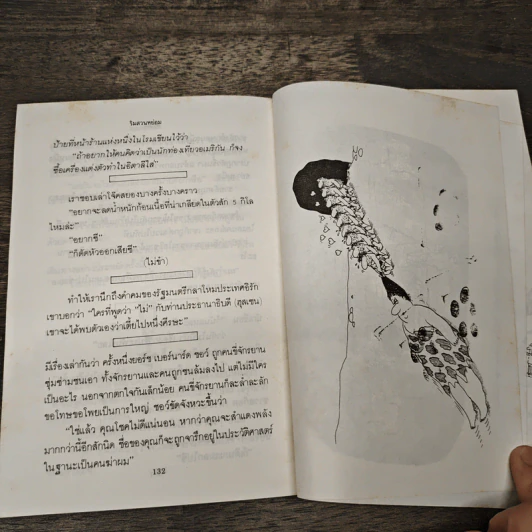 ริมสวนหย่อม
ป้ายที่หน้าร้านแห่งหนึ่งในโรมเขียนไว้ว่า
"ถ้าอยากให้คนคิดว่าเป็นนักท่องเที่ยวอเมริกัน ก็จง
ซื้อเครื่องแต่งตัวทำในอิตาลีใส่"
เราชอบเล่าโจ๊กสยองบางครั้งบางคราว
"อยากจะลดน้ำหนักก้อนเนื้อที่น่าเกลียดในตัวสัก 5 กิโล
ไหมล่ะ"
"อยากซี"
"ก็ตัดหัวออกเสียซี"
(ไม่ขำ)
ทำให้เรานึกถึงคำคมของรัฐมนตรีกลาโหมประเทศอิรัก
เขาบอกว่า "ใครที่พูดว่า "ไม่" กับท่านประธานาธิบดี (ฮุสเซน)
เขาจะได้พบตัวเองว่าเตี้ยไปหนึ่งศีรษะ"
มีเรื่องเล่ากันว่า ครั้งหนึ่งยอร์ช เบอร์นาร์ด ชอว์ ถูกคนขี่จักรยาน
ซุ่มซ่ามชนเอา ทั้งจักรยานและคนถูกชนล้มลงไป แต่ไม่มีใคร
เป็นอะไร นอกจากตกใจกันเล็กน้อย คนขี่จักรยานก็ละล่ำละลัก
ขอโทษขอโพยเป็นการใหญ่ ชอว์ขัดจังหวะขึ้นว่า
"ใช่แล้ว คุณโชคไม่ดีแน่นอน หากว่าคุณจะสำแดงพลัง
มากกว่านี้อีกสักนิด ชื่อของคุณก็จะถูกจารึกอยู่ในประวัติศาสตร์
ในฐานะเป็นคนฆ่าผม"
132